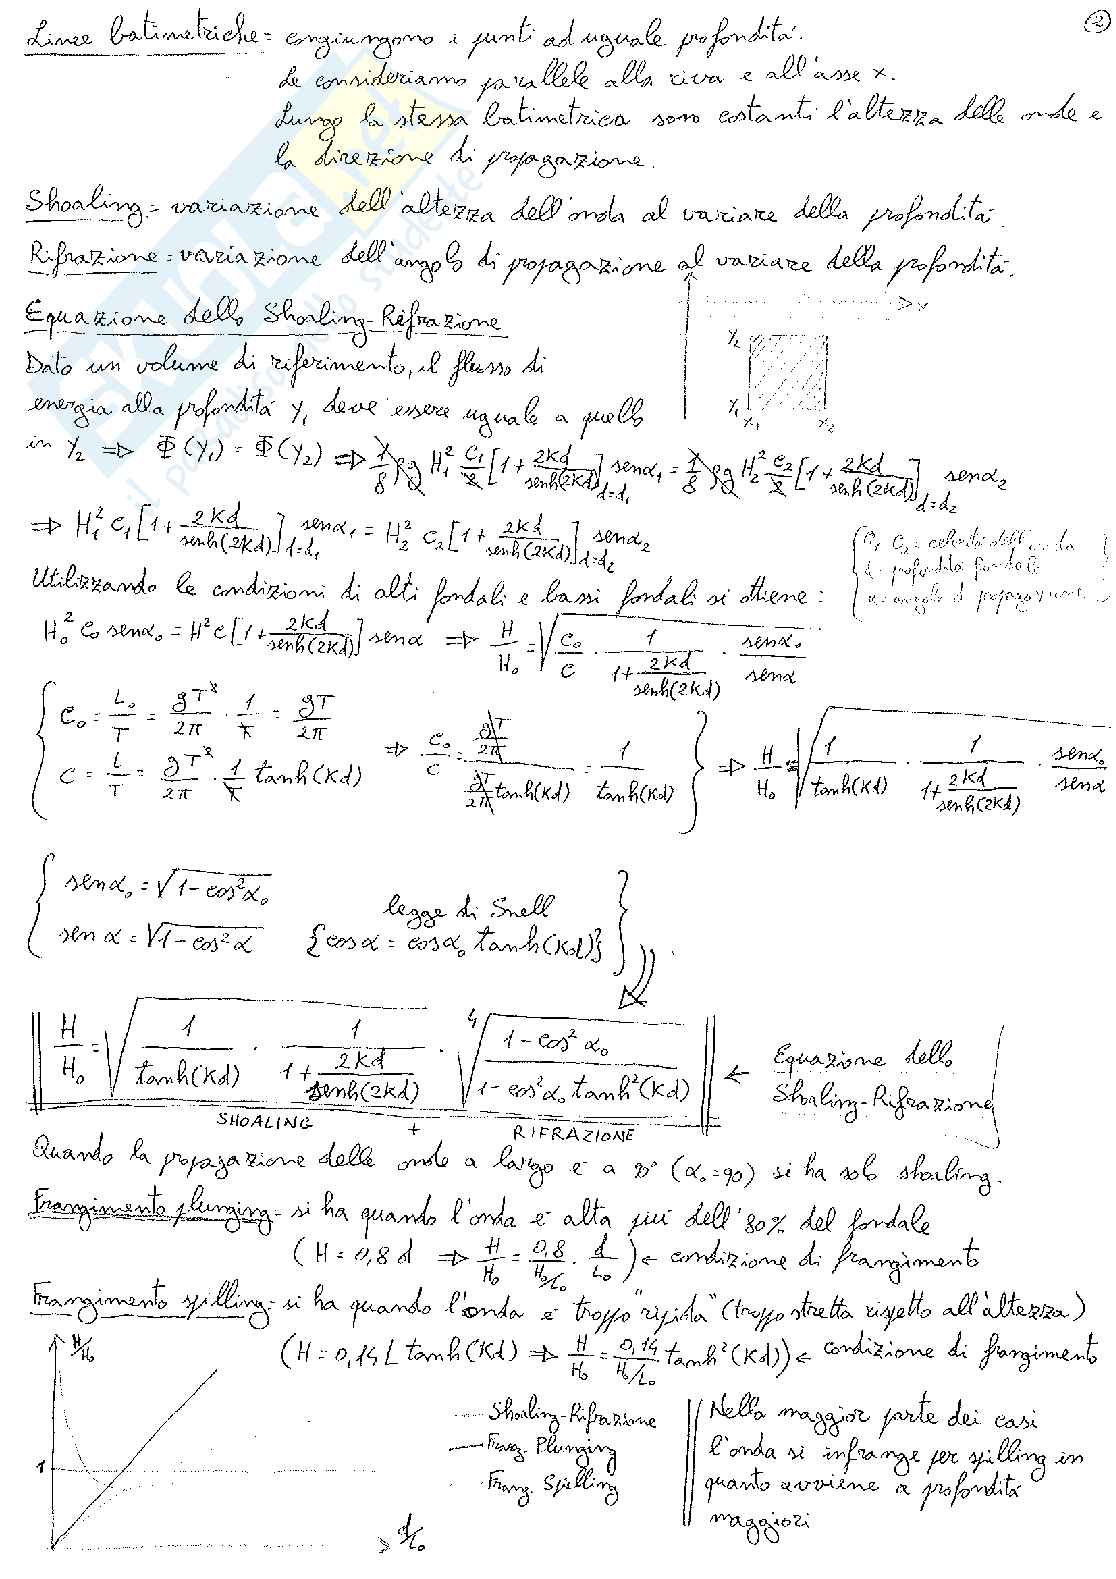 2
Linee batimetriche = congiungono i punti ad uguale profondità.
Le consideriamo parallele alla riva e all'asse x.
Lungo la stessa batimetrica sono costanti l'altezza delle onde e
la direzione di propagazione.
Shoaling = variazione dell'altezza dell'onda al variare della profondità.
Rifrazione = variazione dell'angolo di propagazione al variare della profondità.
Equazione dello Shoaling-Rifrazione
x
Dato un volume di riferimento, il flusso di
y₂
energia alla profondità y₁ deve essere uguale a quello
y₁ x₁ x₂
in y₂ ⇒ Φ(y₁) = Φ(y₂) ⇒ 1/8 ρg H₁² c₁/2 [1 + 2Kd/senh(2Kd)]d=d₁ senα₁ = 1/8 ρg H₂² c₂/2 [1 + 2Kd/senh(2Kd)]d=d₂ senα₂
⇒ H₁² c₁ [1 + 2Kd/senh(2Kd)]d=d₁ senα₁ = H₂² c₂ [1 + 2Kd/senh(2Kd)]d=d₂ senα₂
c₁ c₂ = celerità dell'onda
d = profondità fondo
α = angolo di propagazione
Utilizzando le condizioni di alti fondali e bassi fondali si ottiene:
H₀² c₀ senα₀ = H² c [1 + 2Kd/senh(2Kd)] senα ⇒ H/H₀ = √(c₀/c · 1/(1 + 2Kd/senh(2Kd)) · senα₀/senα)
{ c₀ = L₀/T = gT²/2π · 1/T = gT/2π
c = L/T = gT²/2π · 1/T tanh(Kd) ⇒ c₀/c = (gT/2π)/(gT/2π tanh(Kd)) = 1/tanh(Kd) } ⇒ H/H₀ = √(1/tanh(Kd) · 1/(1 + 2Kd/senh(2Kd)) · senα₀/senα)
{ senα₀ = √(1-cos²α₀)
legge di Snell
senα = √(1-cos²α) {cosα = cosα₀ tanh(Kd)} }
H/H₀ = √(1/tanh(Kd) · 1/(1 + 2Kd/senh(2Kd))) · ⁴√((1-cos²α₀)/(1-cos²α₀ tanh²(Kd))) ← Equazione dello
Shoaling-Rifrazione
SHOALING + RIFRAZIONE
Quando la propagazione delle onde a largo è a 90° (α₀=90) si ha solo shoaling.
Frangimento plunging = si ha quando l'onda è alta più dell'80% del fondale
(H = 0,8 d ⇒ H/H₀ = 0,8/(H₀/L₀) · d/L₀) ← condizione di frangimento
Frangimento spilling = si ha quando l'onda è troppo "ripida" (troppo stretta rispetto all'altezza)
(H = 0,14 L tanh(Kd) ⇒ H/H₀ = 0,14/(H₀/L₀) tanh²(Kd)) ← condizione di frangimento
H/H₀
1
d/L₀
Shoaling-Rifrazione
Frang. Plunging
Frang. Spilling
Nella maggior parte dei casi
l'onda si infrange per spilling in
quanto avviene a profondità
maggiori